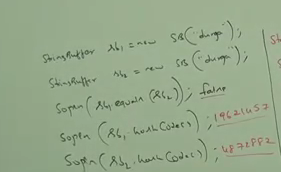 StringBuffer sb1 = new SB("durga");
StringBuffer sb2 = new SB("durga");
Sopln(sb1.equals(sb2)); false
Sopln(sb1.hashCode()); 19621457
Sopln(sb2.hashCode()); 4872882